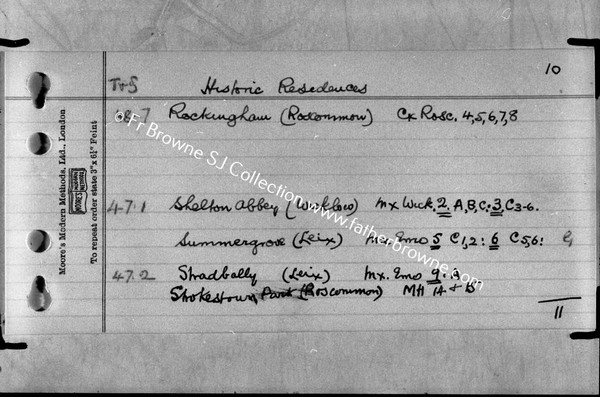 10
T→S Historic Residences
48.7 Rockingham (Roscommon) Cx Rosc. 4,5,6,7,8
47.1 Shelton Abbey (Wicklow) Mx Wick. 2. A,B,C: 3. C3-6.
Summergrove (Leix) Mx. Emo 5 C1,2: 6 C5,6:
47.2 Stradbally (Leix) Mx. Emo 9: A
Strokestown Park (Roscommon) MH 1A + B
11
Moore's Modern Methods, Ltd., London
To repeat order state 3" x 6½" Feint
© Fr Browne SJ Collection www.fatherbrowne.com